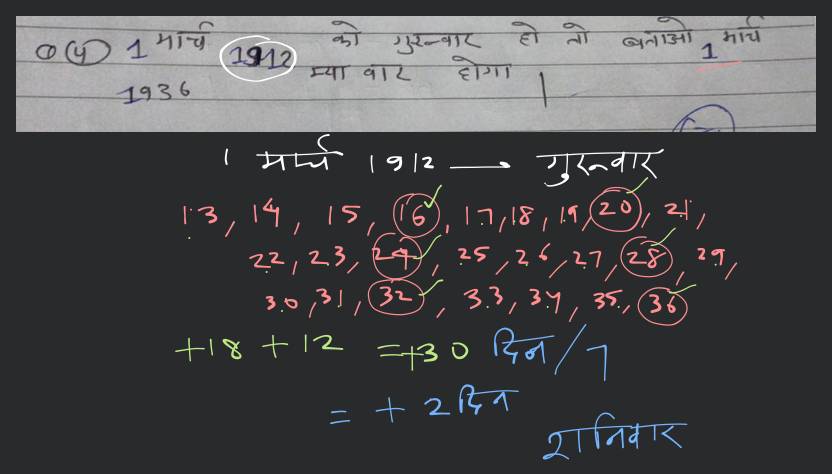 Q (4) 1 मार्च 1912 को गुरूवार हो तो बताओ 1 मार्च
1936 क्या वार होगा |
1 मार्च 1912 — गुरूवार
13, 14, 15, 16, 17, 18, 19, 20, 21,
22, 23, 24, 25, 26, 27, 28, 29,
30, 31, 32, 33, 34, 35, 36
+18 + 12 = +30 दिन / 7
= + 2 दिन
शनिवार